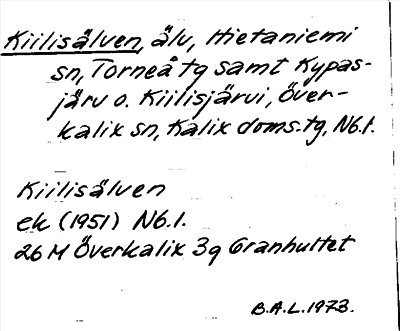 Kiilisälven, älv, Hietaniemi
sn, Torneå tg samt Kypas-
järv o. Kiilisjärvi, Över-
kalix sn, Kalix doms.tg, Nb.l.
Kiilisälven
ek (1951) Nb.l.
26 M Överkalix 3g Granhultet
B.A.L. 1973.